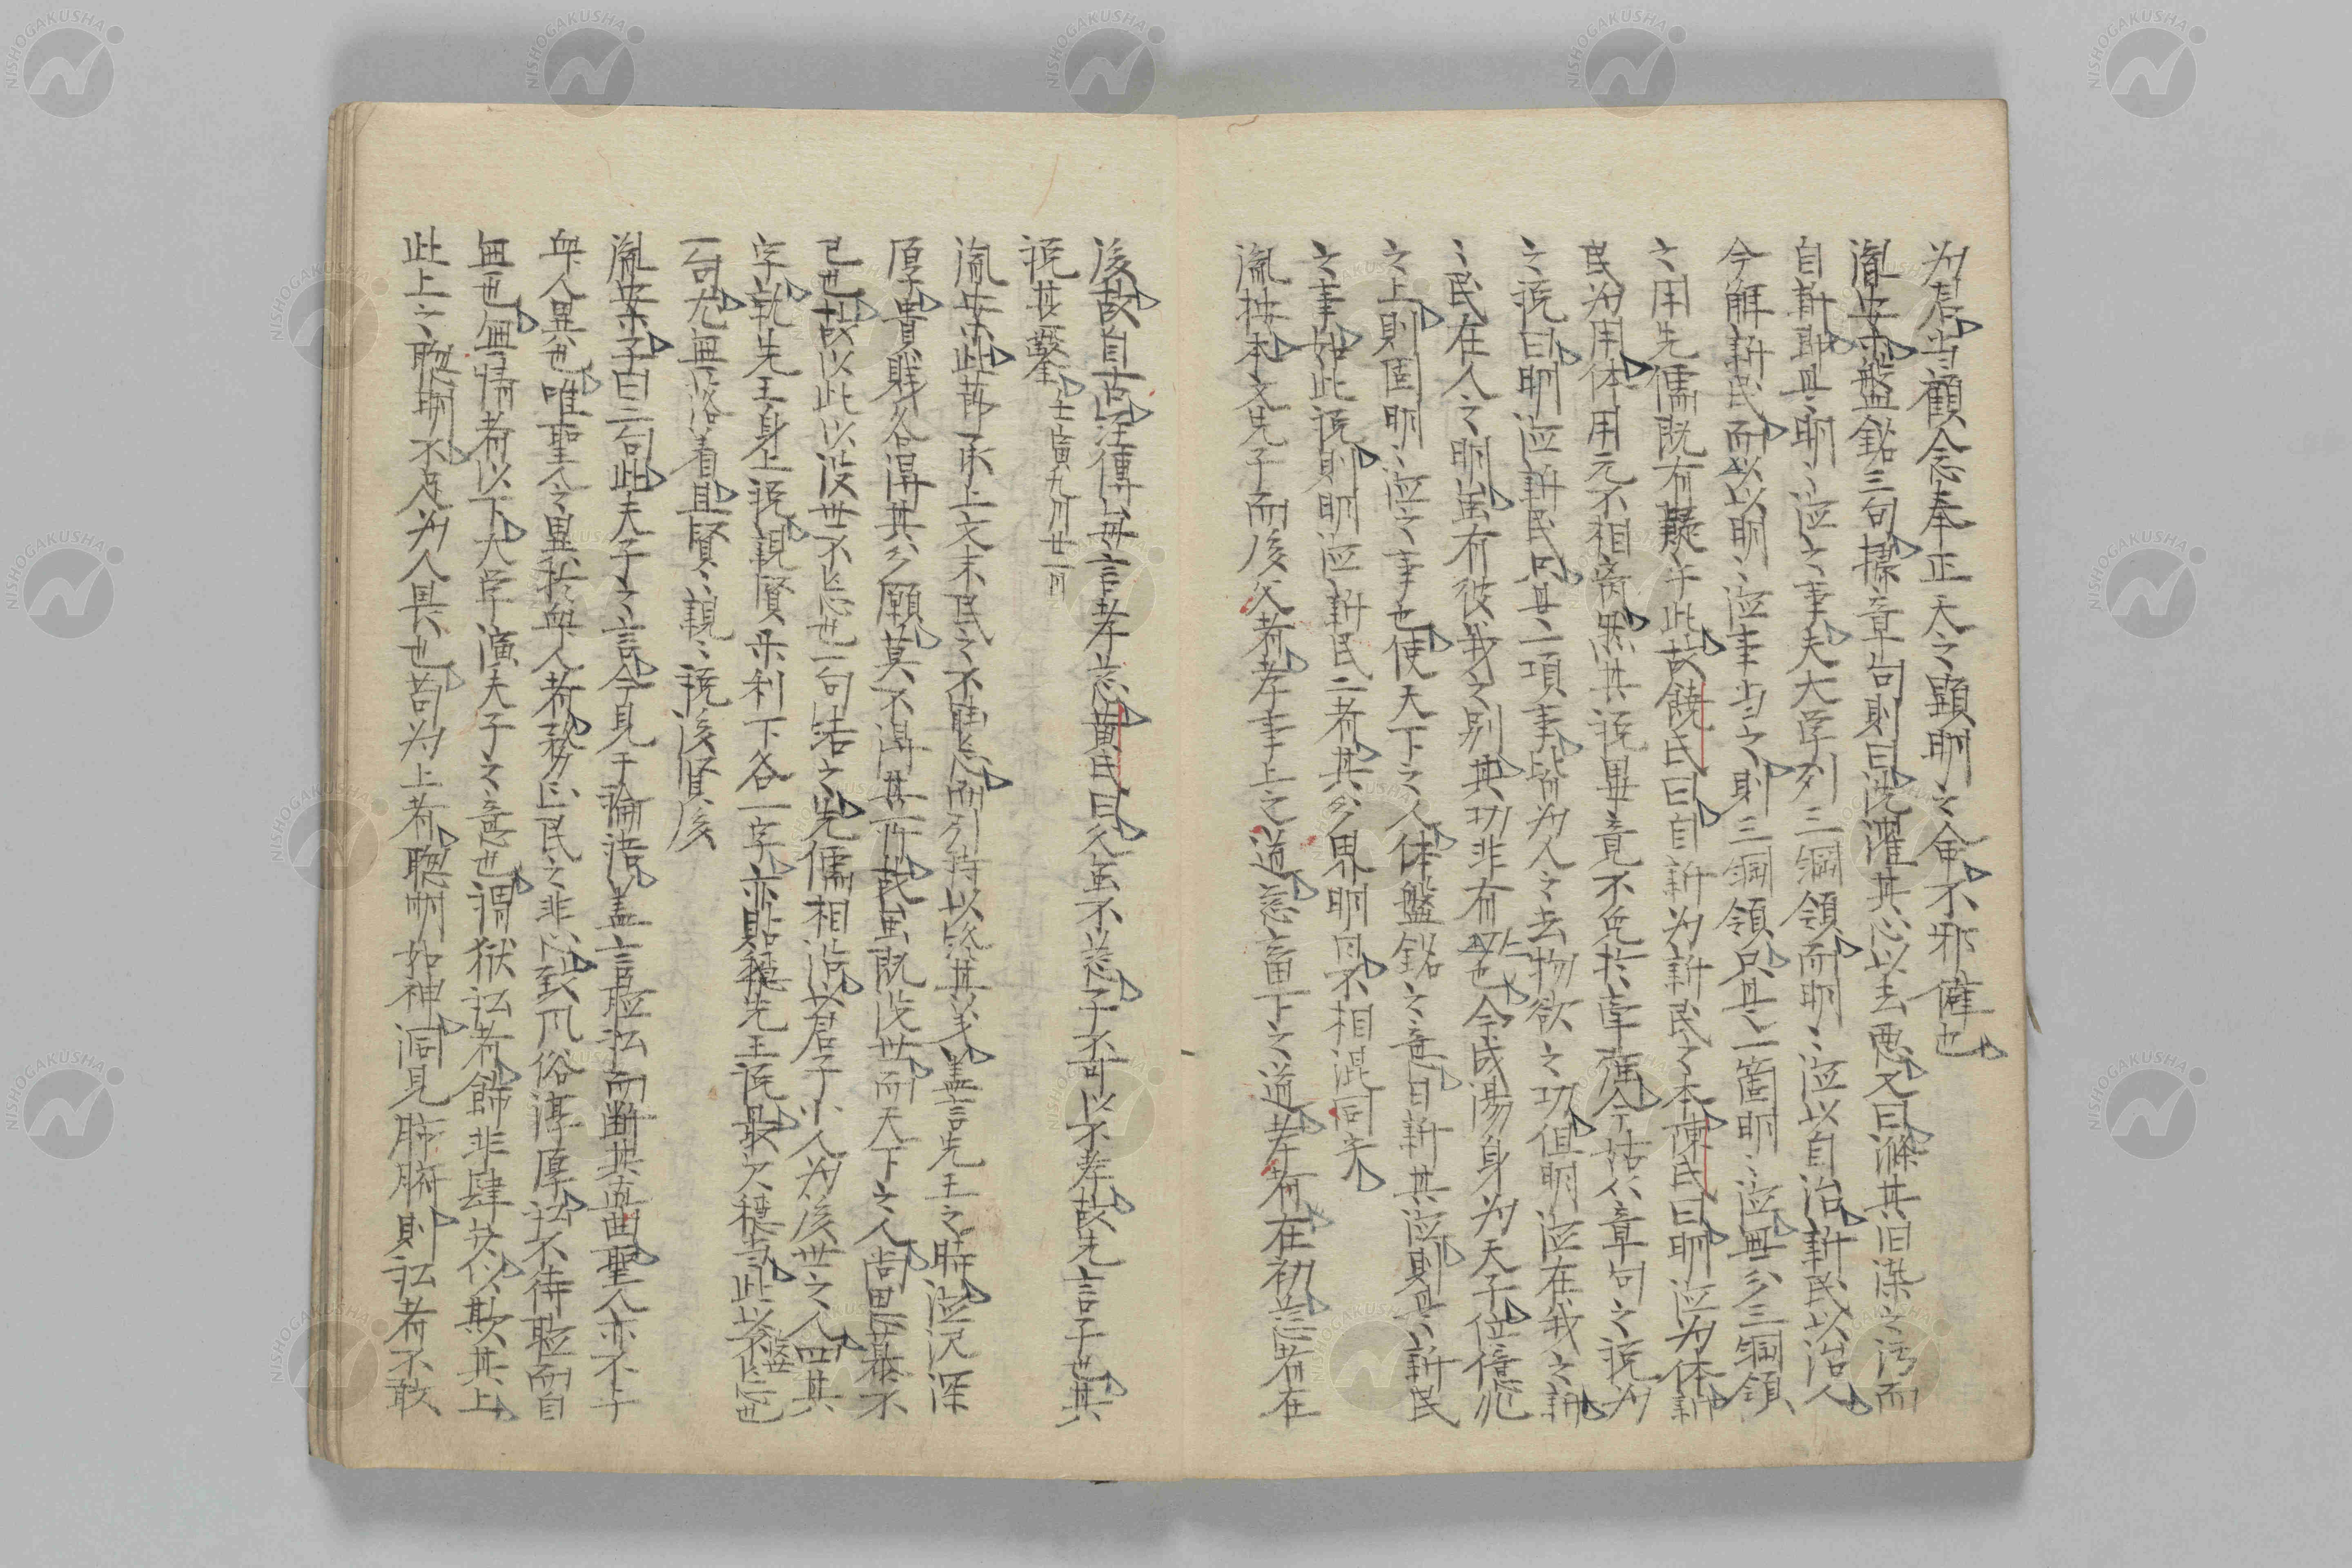 為辰当顧念奉正天之顕明之命不邪僻也
胤按盤銘三句據章句則曰洗濯其心以去悪又曰滌其旧染之汚而
自新即是明〻德之事夫大学列三綱領而明〻德以自治新民以治人
今解新民而以以明〻德事当之則三綱領只是一箇明〻德無分三綱領
之用先儒既有疑于此故饒氏曰自新为新民之本陳氏曰明德为体新
民为用体用元不相离然其説畢竟不免於牽強今姑从章句之説为
之説曰明德新民只是一項事皆为人之去物欲之功但明德在我之新
〻民在人之明虽有彼我之別其功非有也今成湯身为天子位億兆
之上則固明〻德之事也使天下之人体盤銘之意自新其德則是新民
之事如此説則明德新民二者其分界明白不相混同矣
胤按本文先子而後父者孝事上之道慈畜下之道孝者在初慈者在
後故自古經傳毎言孝慈黄氏曰父虽不慈子不可以不孝故先言子也其
説甚鑿 壬寅九月廿一日
胤按此節承上文末民之不能忘而引詩以終其義蓋言先王之時德沢深
厚貴賎各得其分願莫不得其所哉虽既没世而天下之人尚思慕不
已也故以此以没世不忘也一句結之先儒相沿以君子小人为後世之人四其
字就先王身上説親賢楽利下各一字亦貼穏先王説最欠穏与此以不忘也
一句尤無落着且賢〻親〻説後賢後
胤按子曰二句此夫子之言今見于論語蓋言聴訟而断其直曲聖人亦不与
衆人異也唯聖人之異於衆人者務正民之非以致凨俗淳厚訟不待聴而自
無也無情者以下大学演夫子之意也謂獄訟者飾非肆詐以欺其上
此上之聡明不足为人畏也苟为上者聡明如神洞見肺腑則訟者不敢